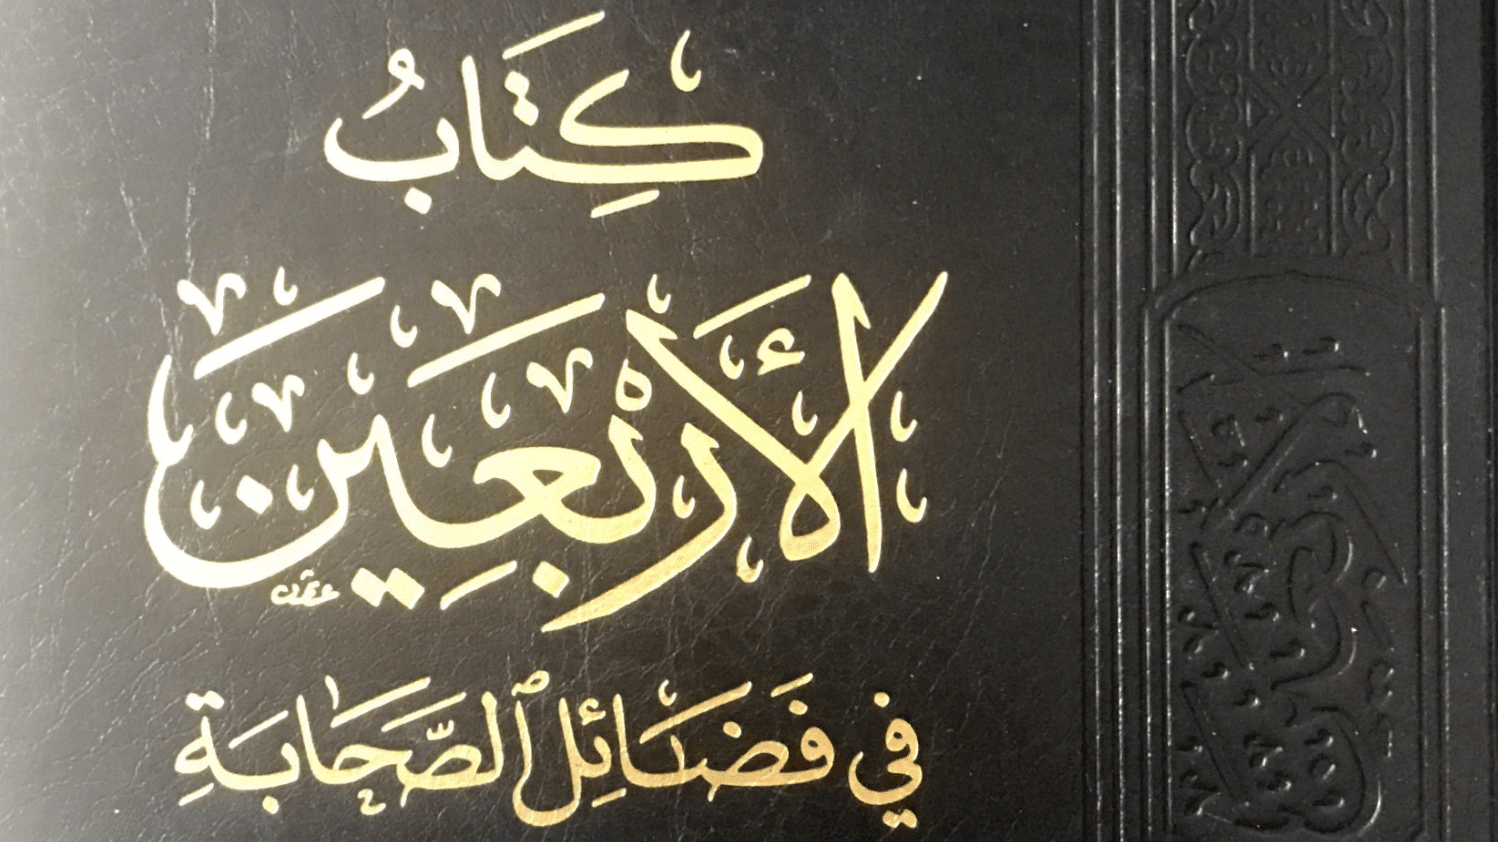 كِتَابُ
الأَرْبَعِينَ
في فَضَائِلِ ٱلصَّحَابَةِ